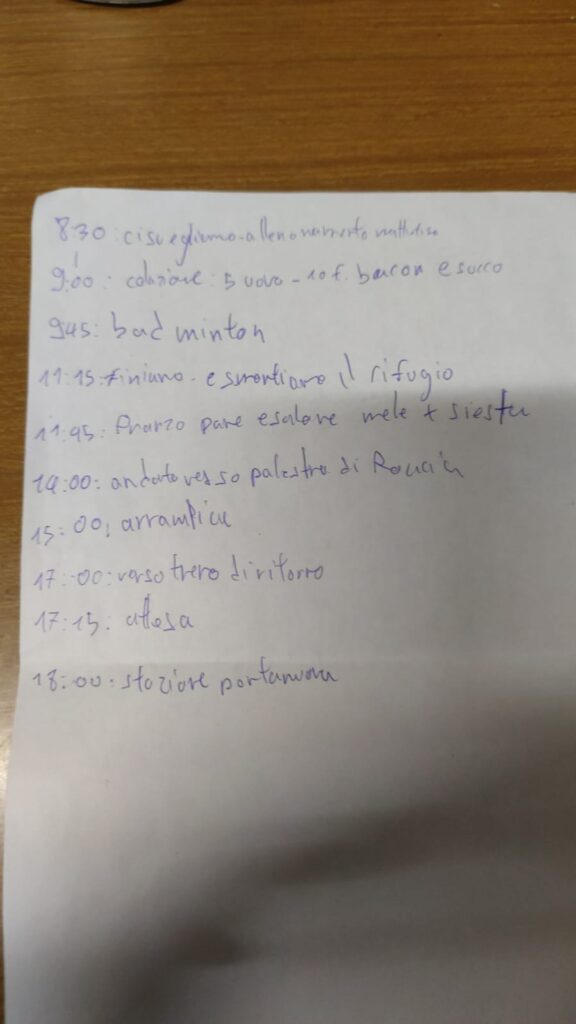 8:30: ci svegliamo - allenonamento
9:00: colazione: 5 uova - 10 f. bacon e succo
945: bad minton
11:15: finiano - e smontiamo il rifugio
11:45: Pranzo pane e salame mele + siesta
14:00: andata verso palestra di
15:00: arrampica
17:00: verso treno di ritorno
17:15: attesa
18:00: stazione portanuova